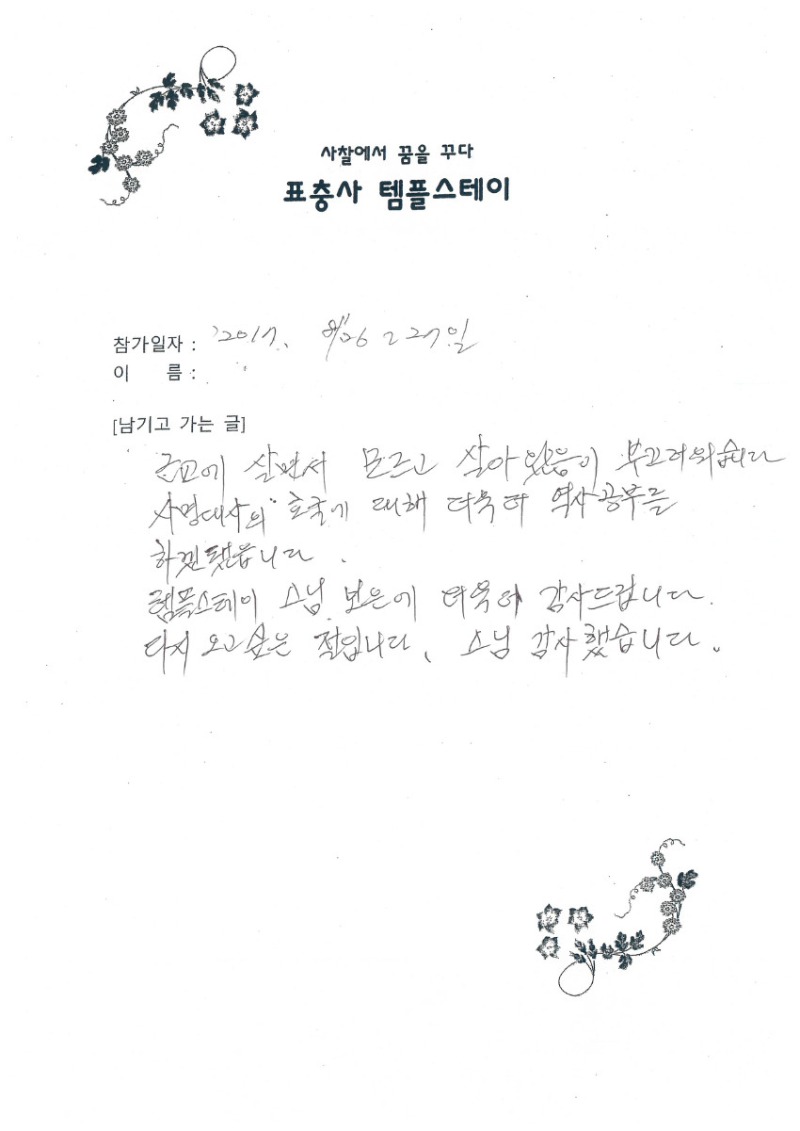 사찰에서 꿈을 꾸다
표충사 템플스테이
참가일자 : 2017. 8/26 ~ 27일
이 름 :
[남기고 가는 글]
근교에 살면서 모르고 살아 있음이 부끄러워습니다
사명대사의 호국에 대해 더욱더 역사공부를
하겠됐습니다.
템플스테이 스님 보은에 더욱더 감사드립니다.
다시 오고 싶은 절입니다. 스님 감사했습니다.